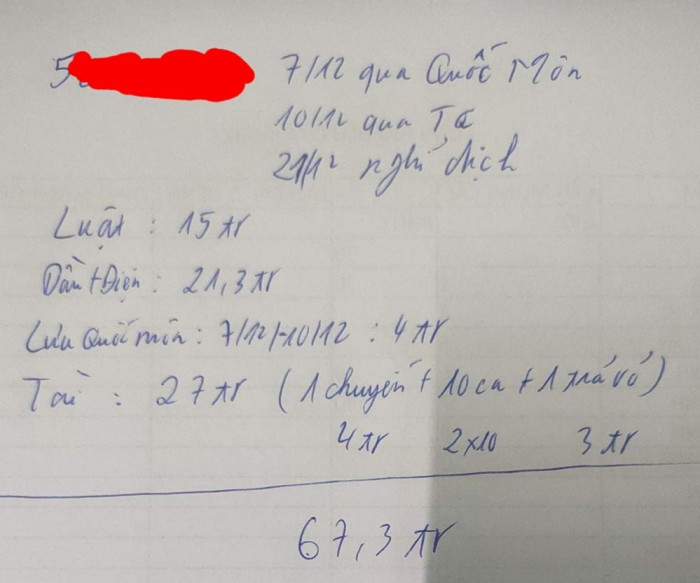 5
7/12 qua Quốc Môn
10/12 qua Ta
21/12 nghỉ dịch
Luật : 15 tr
Dầu + Điện : 21,3 tr
Lưu Quốc môn : 7/12 - 10/12 : 4 tr
Tài : 27 tr ( 1 chuyến + 10 ca + 1 trả vỏ )
4 tr 2x10 3 tr
67,3 tr